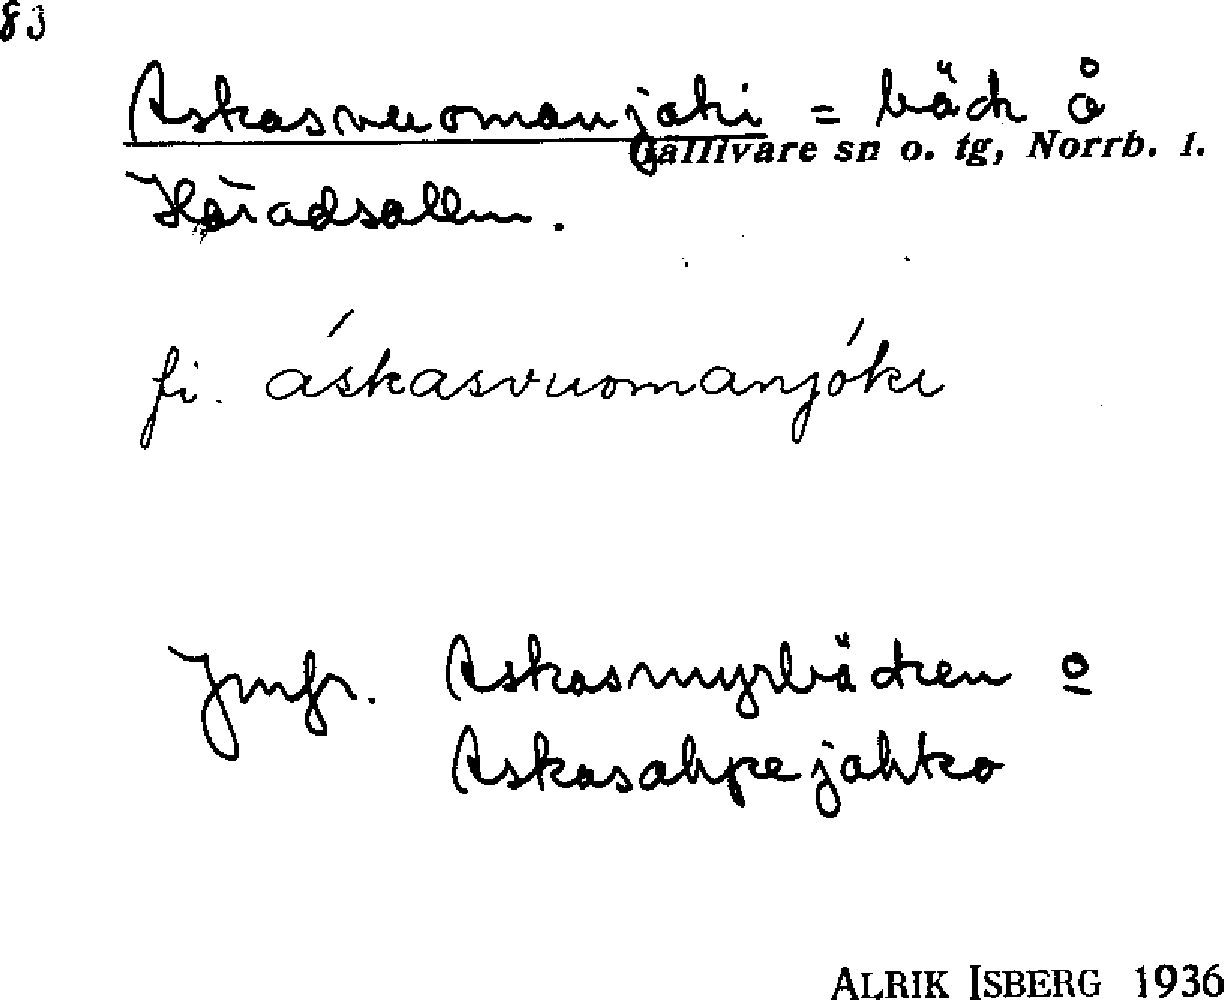 83
Askasvuomanjoki = bäck å
Gällivare sn o. tg, Norrb. l.
Häradsallm.
fi. áskasvuomanjókı
Jmfr. Askasmyrbäcken o
Askasahpejohko
ALRIK ISBERG 1936